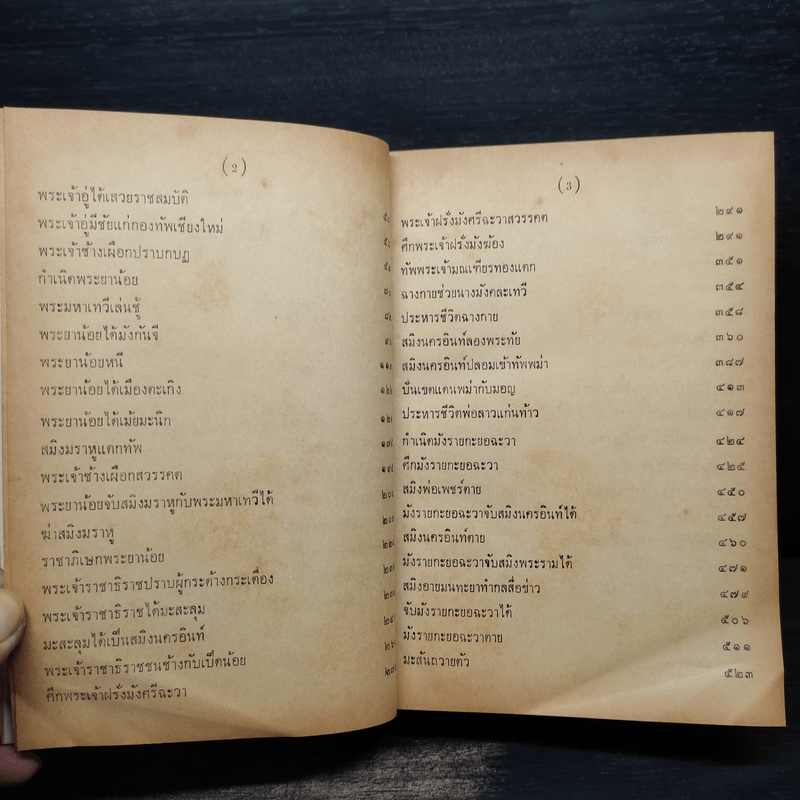 (2)
พระเจ้าอู่ได้เสวยราชสมบัติ
พระเจ้าอู่มีชัยแก่กองทัพเชียงใหม่
พระเจ้าช้างเผือกปราบกบฏ
กำเนิดพระยาน้อย
พระมหาเทวีเล่นชู้
พระยาน้อยได้มังกันจี
พระยาน้อยหนี
พระยาน้อยได้เมืองตะเกิง
พระยาน้อยได้เม้ยมะนิก
สมิงมราหูแตกทัพ
พระเจ้าช้างเผือกสวรรคต
พระยาน้อยจับสมิงมราหูกับพระมหาเทวีได้
ฆ่าสมิงมราหู
ราชาภิเษกพระยาน้อย
พระเจ้าราชาธิราชปราบผู้กระด้างกระเดื่อง
พระเจ้าราชาธิราชได้มะสะลุม
มะสะลุมได้เป็นสมิงนครอินท์
พระเจ้าราชาธิราชชนช้างกับเป็ดน้อย
ศึกพระเจ้าฝรั่งมังศรีฉะวา
(3)
พระเจ้าฝรั่งมังศรีฉะวาสวรรคต ๒๙๑
ศึกพระเจ้าฝรั่งมังฆ้อง ๒๙๑
ทัพพระเจ้ามณเฑียรทองแตก ๓๕๑
ฉางกายช่วยนางมังคละเทวี ๓๕๔
ประหารชีวิตฉางกาย ๓๕๘
สมิงนครอินท์ลองพระทัย ๓๖๐
สมิงนครอินท์ปลอมเข้าทัพพม่า ๓๘๗
ปันเขตแดนพม่ากับมอญ ๔๑๓
ประหารชีวิตพ่อลาวแก่นท้าว ๔๑๗
กำเนิดมังรายกะยอฉะวา ๔๒๔
ศึกมังรายกะยอฉะวา ๔๒๕
สมิงพ่อเพชร์ตาย ๔๕๐
มังรายกะยอฉะวาจับสมิงนครอินท์ได้ ๔๕๗
สมิงนครอินท์ตาย ๔๖๐
มังรายกะยอฉะวาจับสมิงพระรามได้ ๔๗๑
สมิงอายมนทะยาทำกลสื่อข่าว ๔๗๙
จับมังรายกะยอฉะวาได้ ๕๐๖
มังรายกะยอฉะวาตาย ๕๑๑
มะสันถวายตัว ๕๒๓